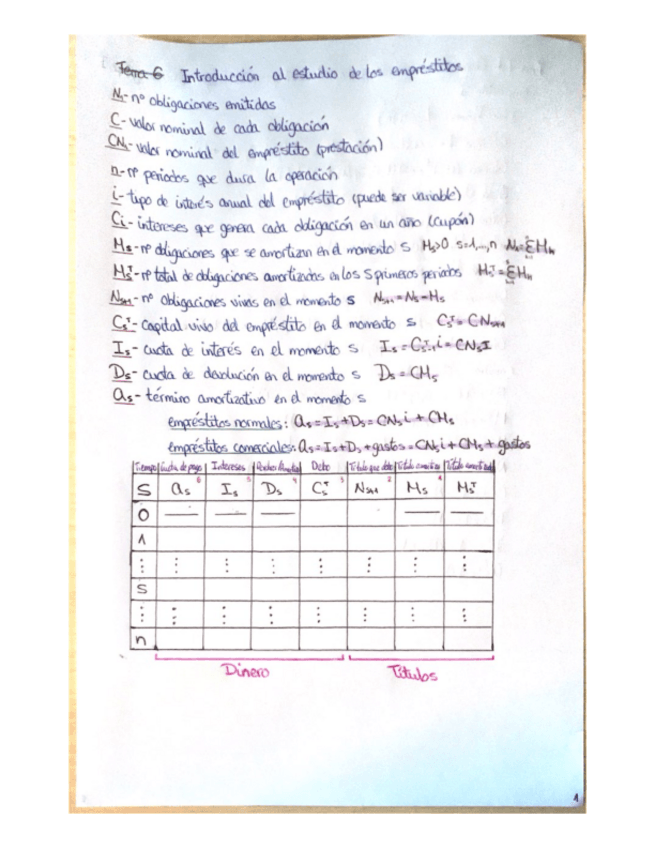 Tema 6 Introducción al estudio de los empréstitos
N₁- nº obligaciones emitidas
C- valor nominal de cada obligación
CN₁- valor nominal del empréstito (prestación)
n- nº periodos que dura la operación
i- tipo de interés anual del empréstito (puede ser variable)
Ci- intereses que genera cada obligación en un año (cupón)
Ms- nº obligaciones que se amortizan en el momento s Ms>0 s=1,...,n
Msᵀ- nº total de obligaciones amortizadas en los s primeros periodos
Ns+1- nº obligaciones vivas en el momento s Ns+1=Ns-Ms
Csᵀ- capital vivo del empréstito en el momento s Csᵀ=CNs+1
Is- cuota de interés en el momento s
Ds- cuota de devolución en el momento s Ds=CMs
as- término amortizativo en el momento s
empréstitos normales: as=Is+Ds=CNsi+CMs
empréstitos comerciales: as=Is+Ds+gastos=CNsi+CMs+gastos
Tiempo Intereses Debo
s as Is Ds Csᵀ Ns+1 Ms Msᵀ
0 — — — — —
1
⋮ ⋮ ⋮ ⋮ ⋮ ⋮ ⋮ ⋮
s
⋮ ⋮ ⋮ ⋮ ⋮ ⋮ ⋮ ⋮
n
Dinero Títulos
1